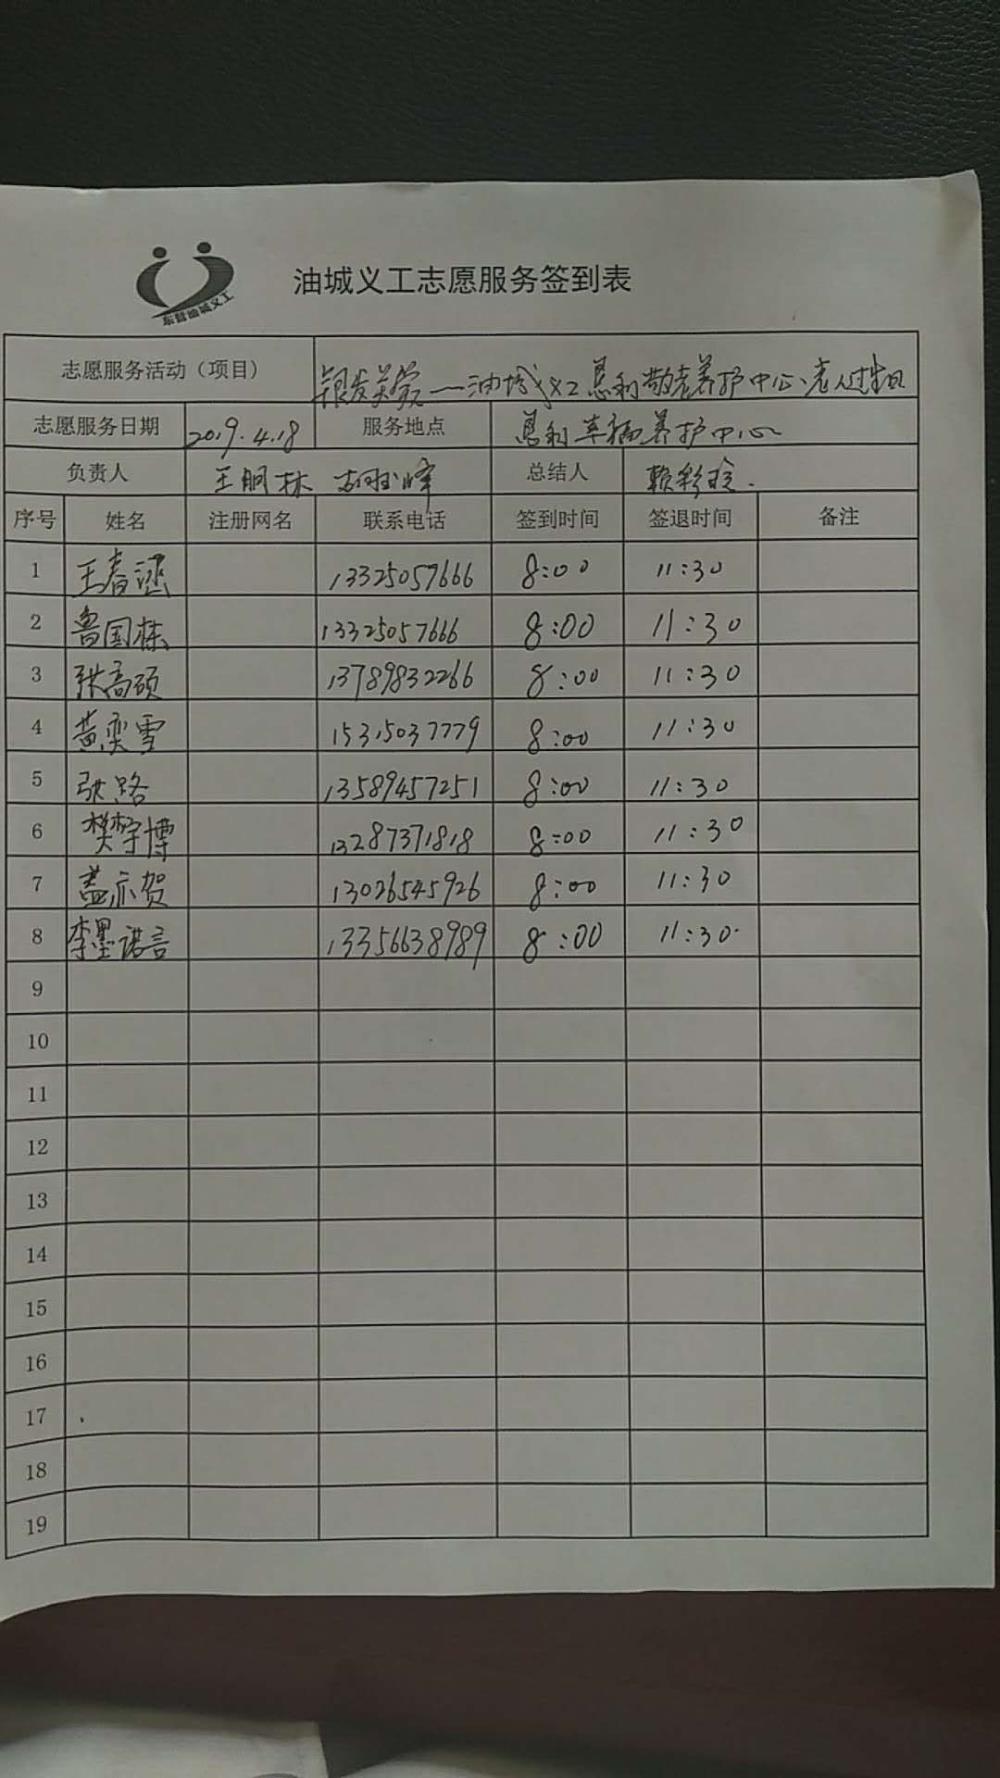 东营油城义工
油城义工志愿服务签到表
志愿服务活动（项目） 银发关爱—油城义工恳利敬老养护中心老人过生日
志愿服务日期 2019.4.18 服务地点 恳利幸福养护中心
负责人 王明林 总结人
序号 姓名 注册网名 联系电话 签到时间 签退时间 备注
1 王春涵 13325057666 8:00 11:30
2 鲁国栋 13325057666 8:00 11:30
3 张高硕 13789832266 8:00 11:30
4 黄奕雪 15315037779 8:00 11:30
5 张路 13589457251 8:00 11:30
6 樊宇博 13287371818 8:00 11:30
7 盖亦贺 13026545926 8:00 11:30
8 李墨诺言 13356638989 8:00 11:30
9
10
11
12
13
14
15
16
17
18
19